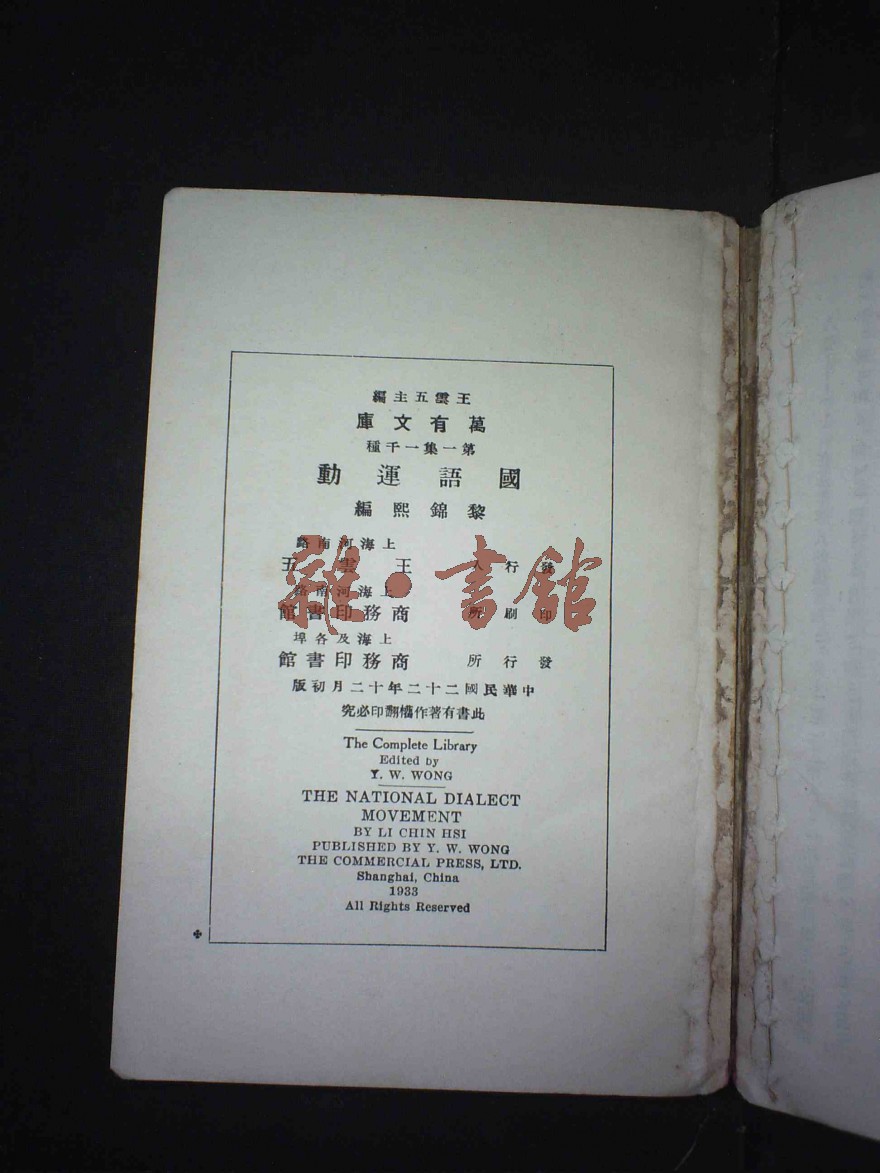 王雲五主編
萬有文庫
第一集一千種
國語運動
黎錦熙編
上海河南路
發行人 王雲五
上海河南路
印刷所 商務印書館
上海及各埠
發行所 商務印書館
中華民國二十二年十二月初版
此書有著作權翻印必究
The Complete Library
Edited by
Y. W. WONG
THE NATIONAL DIALECT
MOVEMENT
BY LI CHIN HSI
PUBLISHED BY Y. W. WONG
THE COMMERCIAL PRESS, LTD.
Shanghai, China
1933
All Rights Reserved
龍·書館